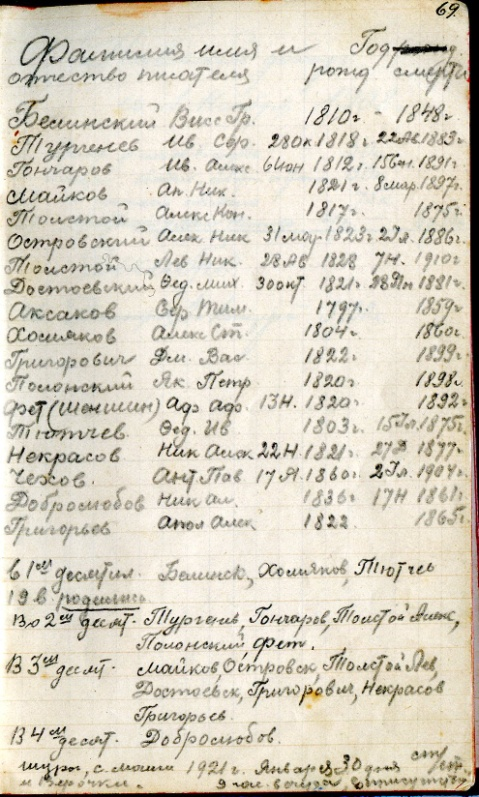 69.
Фамилия имя и Год
отчество писателя рожд смерти
Белинский Висс Гр. 1810г - 1848г.
Тургенев Ив. Сер. 28Ок 1818г. 22Ав. 1883г.
Гончаров Ив. Алекс 6Июн 1812г. 15Сен. 1891г.
Майков Ап. Ник. 1821г. 8мар. 1897г.
Толстой Алекс Кон. 1817г. 1875г
Островский Алек. Ник 31мар. 1823г. 2Іл. 1886г.
Толстой Лев Ник. 28Ав 1828 7Н. 1910г.
Достоевский Фед. Мих. 30окт 1821г. 28Ян 1881г.
Аксаков Сер Тим. 1797г. 1859г
Хомяков Алекс Ст. 1804г. 1860г.
Григорович Дм. Вас 1822г. 1899г.
Полонский Як. Петр. 1820г. 1898г.
Фет (Шеншин) Аф Аф. 13Н. 1820г. 1892г
Тютчев. Фед. Ив 1803г. 15Іл. 1875г.
Некрасов Ник Алек 22Н. 1821г. 27Д 1877г.
Чехов. Ант Пав 17Я. 1860г. 2Іл. 1904г.
Добролюбов Ник ал. 1836г 17Н 1861г.
Григорьев Апол Алек 1822. 1865г.
в 1ом десятил. Белинск, Хомяков, Тютчев
19 в. родились
Во 2ом десят. Тургенев, Гончаров, Толстой Алекс,
Полонский, Фет.
В 3ем десят. Майков, Островск, Толстой Лев,
Достоевск, Григорович, Некрасов
Григорьев.
В 4ом десят. Добролюбов.
с. 1921г. Января 30 дня
и Верочки. 9 час. вечера в присутств